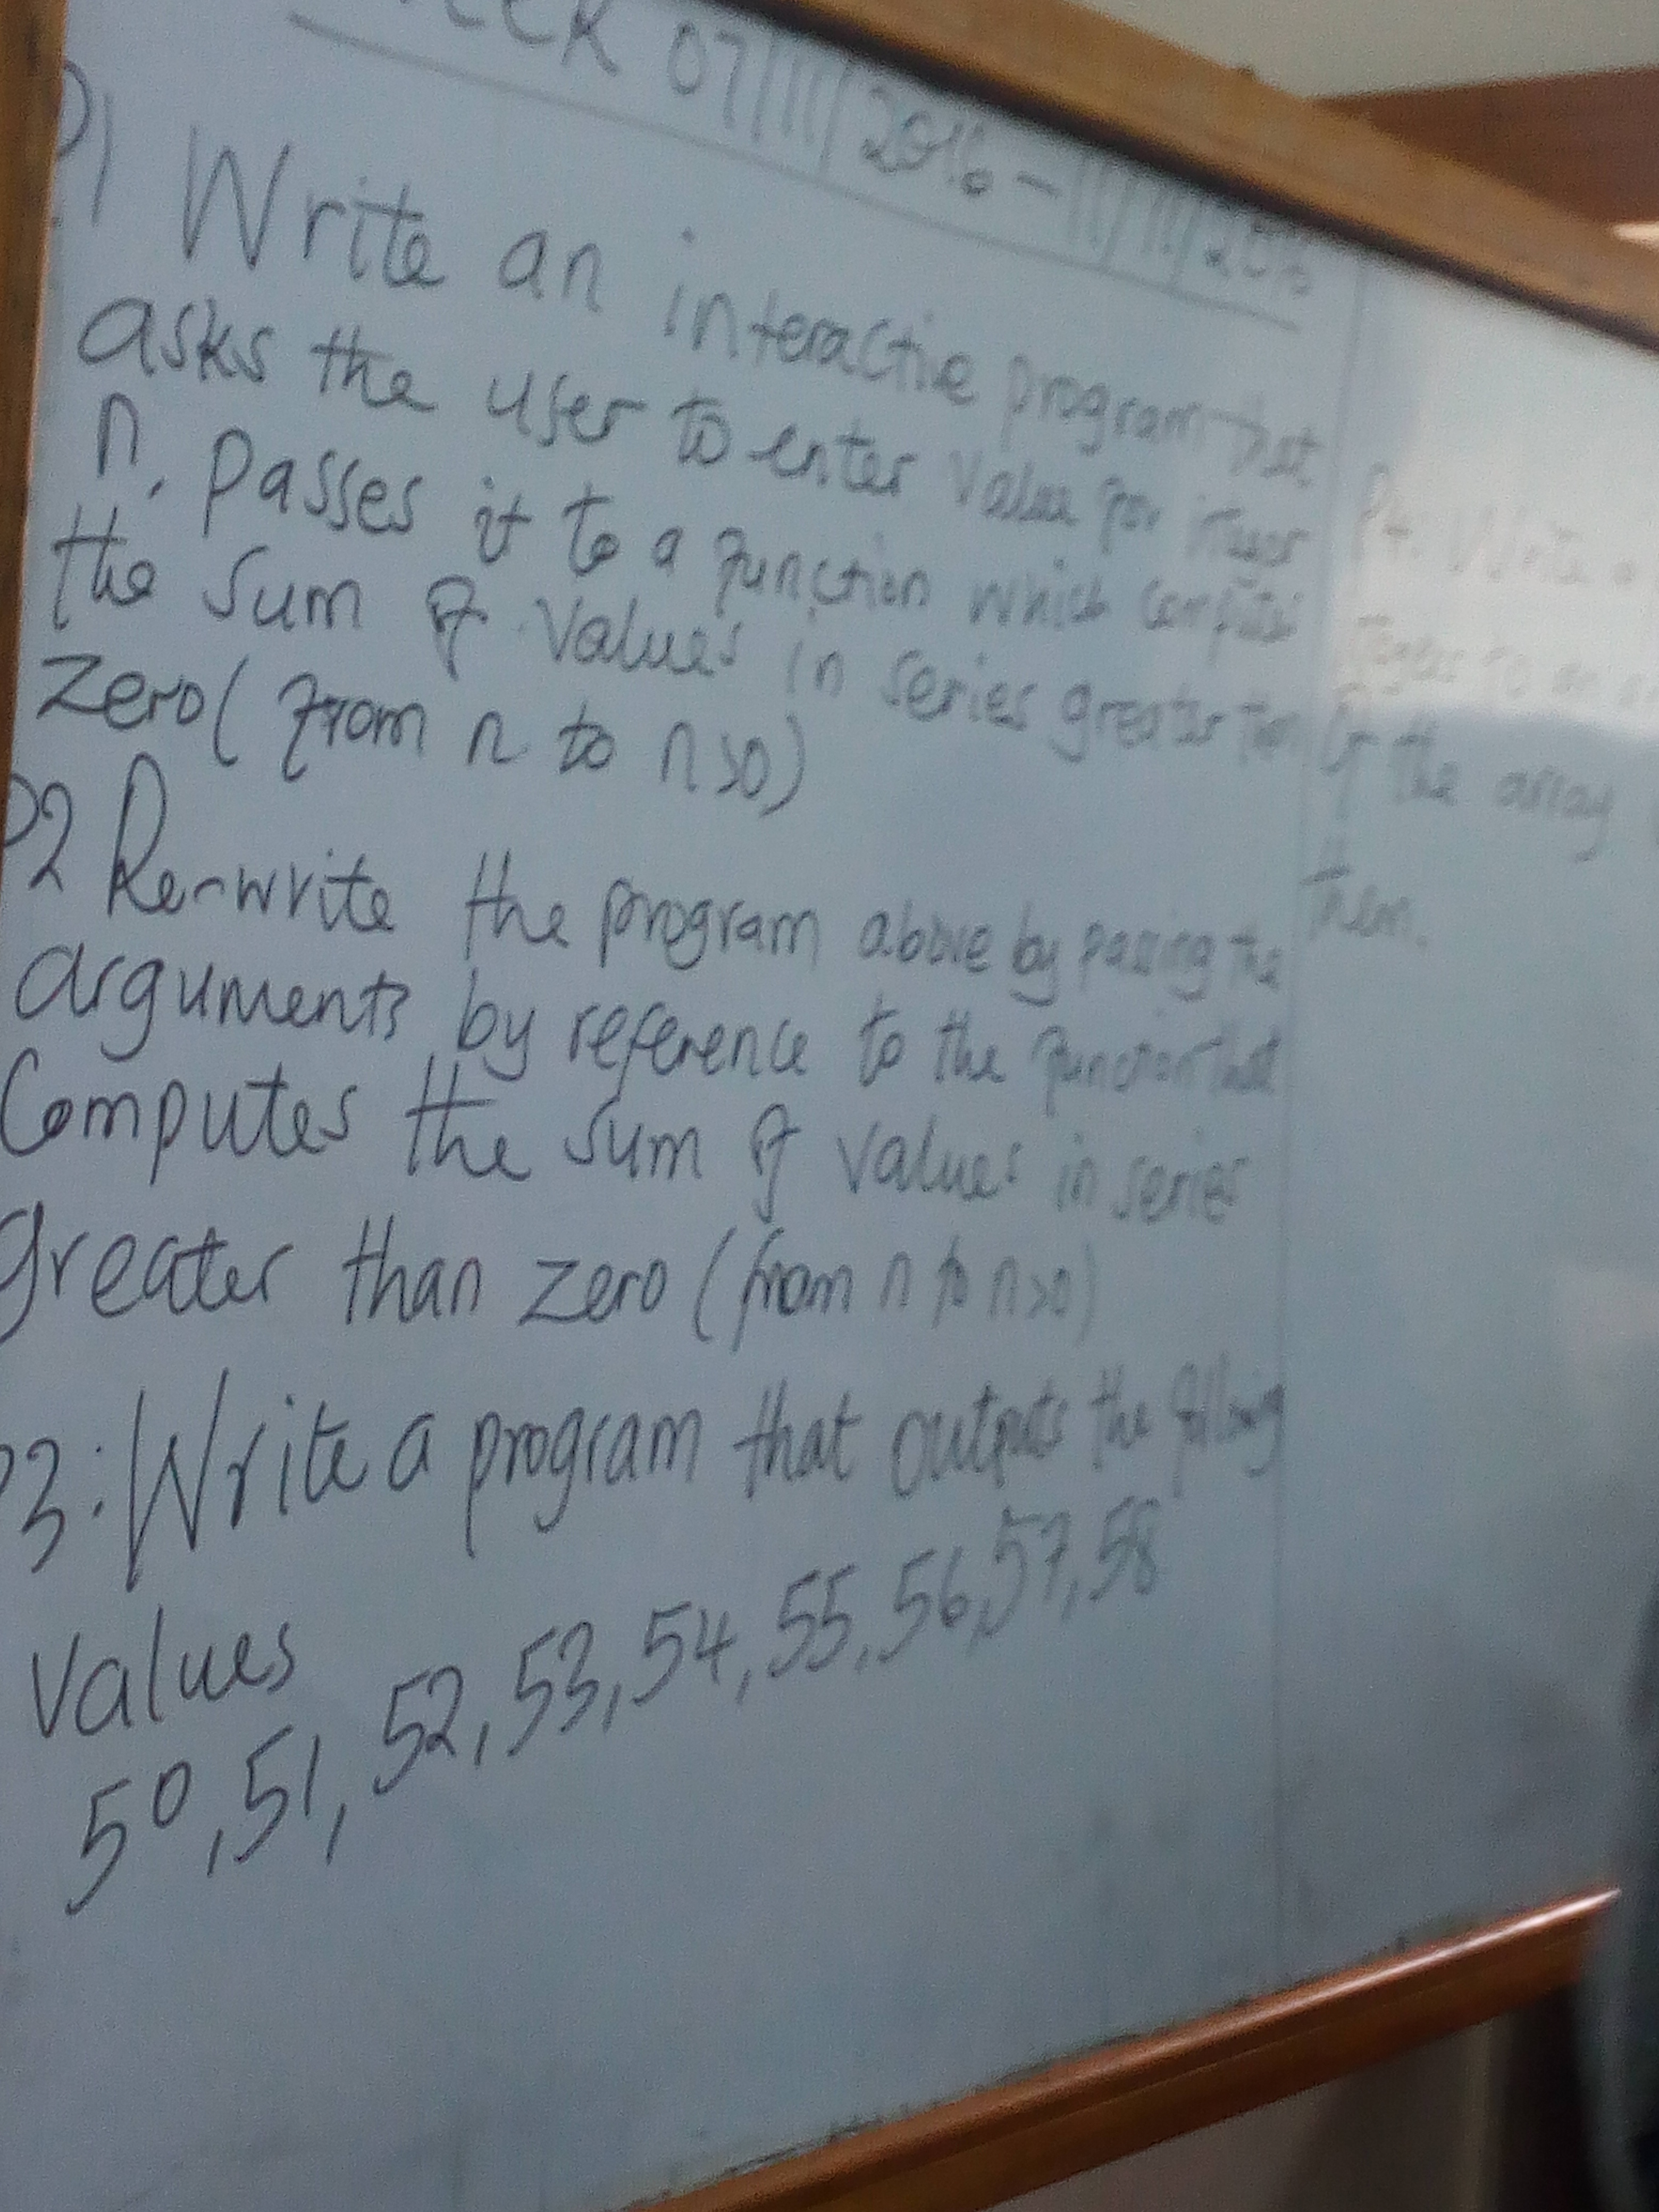 07/11/2016 - 11/11/2016
P1 Write an interactive program that
asks the user to enter value for integer
n. Passes it to a function which computes
the sum of values in series greater than
zero (from n to n>0)
P2 Re-write the program above by passing the
arguments by reference to the function that
Computes the sum of values in series
greater than zero (from n to n>0)
P3: Write a program that outputs the following
Values
50, 51, 52, 53, 54, 55, 56, 57, 58
P4: Write
to an
of the array
them.